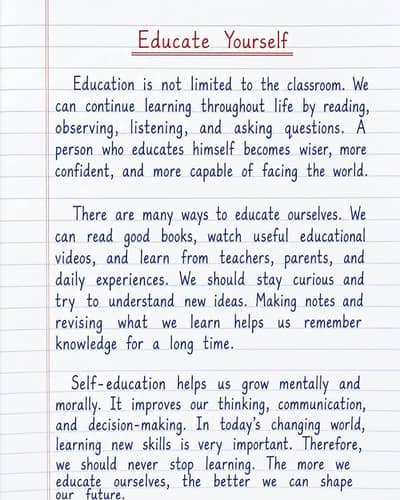 Educate Yourself
Education is not limited to the classroom. We
can continue learning throughout life by reading,
observing, listening, and asking questions. A
person who educates himself becomes wiser, more
confident, and more capable of facing the world.
There are many ways to educate ourselves. We
can read good books, watch useful educational
videos, and learn from teachers, parents, and
daily experiences. We should stay curious and
try to understand new ideas. Making notes and
revising what we learn helps us remember
knowledge for a long time.
Self-education helps us grow mentally and
morally. It improves our thinking, communication,
and decision-making. In today's changing world,
learning new skills is very important. Therefore,
we should never stop learning. The more we
educate ourselves, the better we can shape
our future.